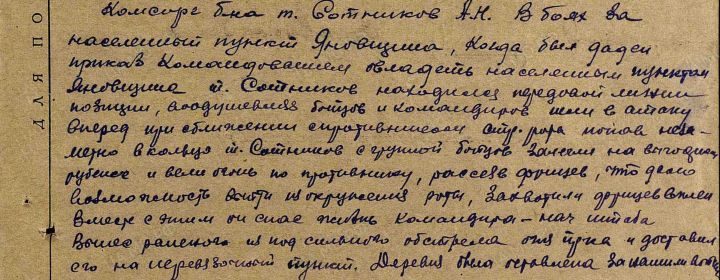 Комсорг б-на т. Сотников А.Н. В боях за
населенный пункт Яновщина, когда был даден
приказ командованием овладеть населенным пунктом
Яновщина т. Сотников находился передовой линии
позиции, воодушевляя бойцов и командиров шли в атаку
вперед при сближении с противником стр. рота попав неза-
метно в кольцо т. Сотников с группой бойцов залегли на выгодном
рубеже и вели огонь по противнику, рассеяв фрицев, что дало
возможность выйти из окружения роты, захватили фрицев в плен
Вместе с этим он спас жизнь командира – нач штаба
Вынес раненого из под сильного обстрела огня пр-ка и доставил
его на перевязочный пункт. Деревня была оставлена за нашим
ДЛЯ ПО